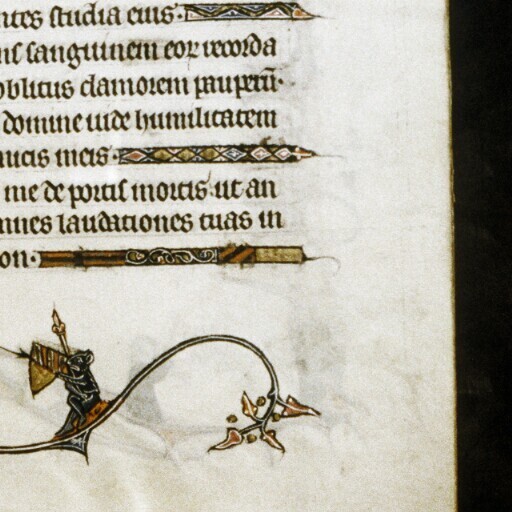 ntes studia eius·
nſ sanguinem eoꝝ recorda
oblitus clamorem pauperū·
domine uide humilitatem
micis meis·
me de portiſ mortis· ut an
mnes laudationes tuas in
on·